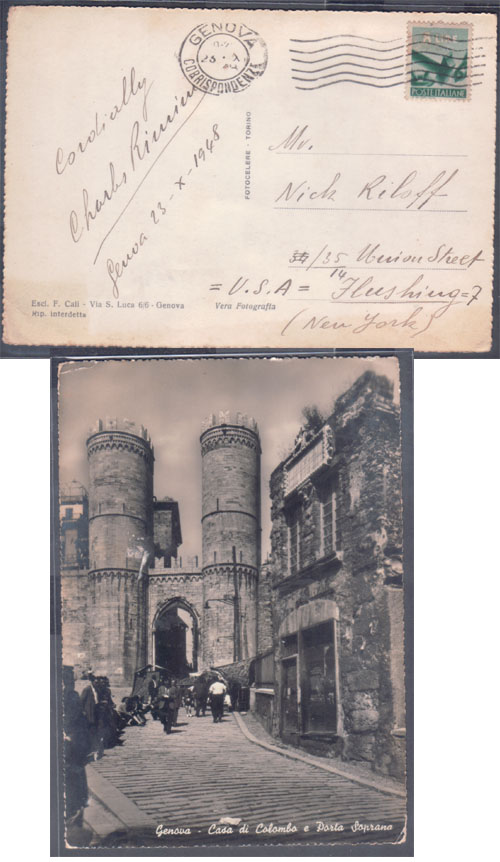 GENOVA
23 · X
CORRISPONDENZE
8 LIRE
POSTE ITALIANE
Cordially
Charles Rimini
Genova 23-X-1948
FOTOCELERE - TORINO
Mr.
Nick Riloff
35/14 Union Street
= U.S.A = Flushing=7
(New York)
Escl. F. Cali - Via S. Luca 6/6 - Genova
Rip. interdetta
Vera Fotografia
Genova - Casa di Colombo e Porta Soprana